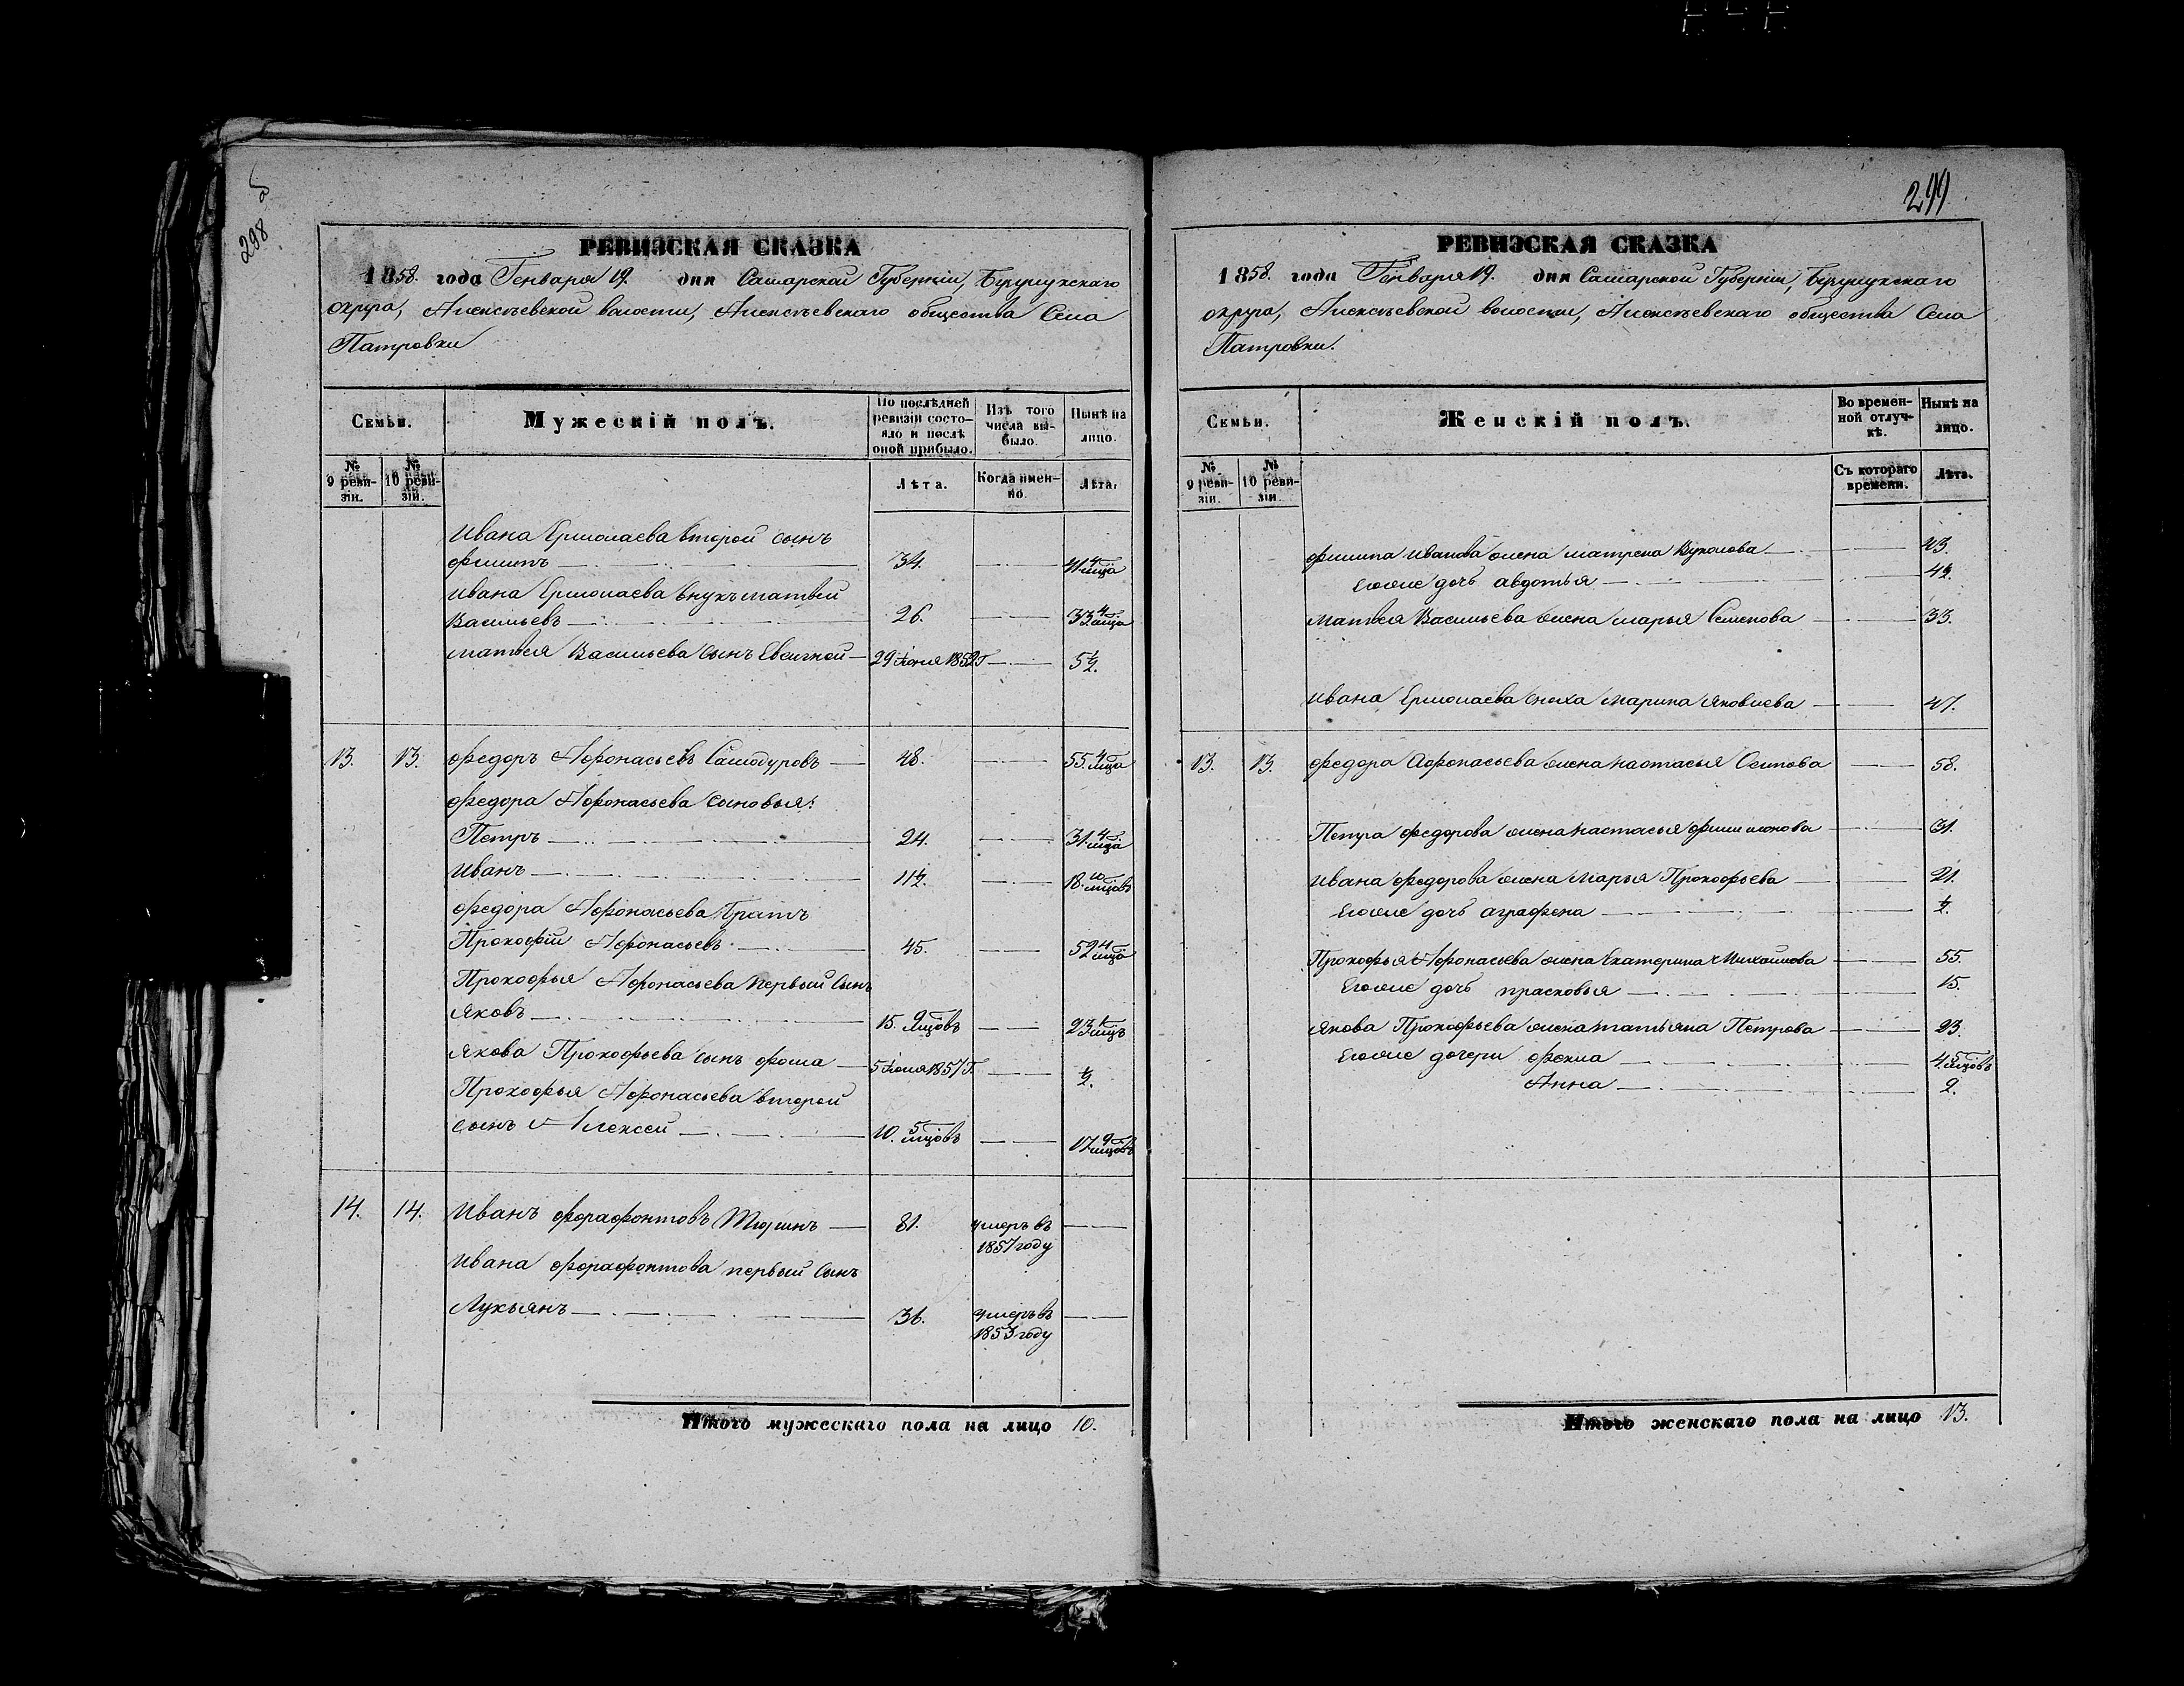 298 б
РЕВИЗСКАЯ СКАЗКА
1858. года Генваря 19. дня Самарской Губерніи, Бузулукскаго
округа, Алексѣевской волости, Алексѣевскаго общества Села
Патровки
Семьи.
Мужескій полъ.
По послѣдней ревизіи состояло и послѣ оной прибыло.
Изъ того числа выбыло.
Нынѣ на лицо.
№ 9 ревизіи.
№ 10 ревизіи.
Лѣта.
Когда именно.
Лѣта.
Ивана Ермолаева второй сынъ
Филипъ — 34. — 41. 4 мца
Ивана Ермолаева внукъ Матвей
Васильевъ — 26. — 33. 4 мца
Матвея Васильева сынъ Евсигней — 29 Іюня 1852 г — 5 1/2.
13. 13. Федоръ Афонасьевъ Самодуровъ — 48. — 55. 4 мца
Федора Афонасьева сыновья:
Петръ — 24. — 31. 4 мца
Иванъ — 11 1/2. — 18. 10 мцовъ
Федора Афонасьева братъ
Прокофій Афонасьевъ — 45. — 52 4 мца
Прокофья Афонасьева первый сынъ
Яковъ — 15. 9 мцовъ — 23. 1 мцъ
Якова Прокофьева сынъ Фома — 5 Іюля 1857 г. — 1/2.
Прокофья Афонасьева второй
сынъ Алексей — 10. 5 мцовъ — 17 9 мцовъ
14. 14. Иванъ Ферафонтовъ Тюринъ — 81. умеръ въ —
1857 году
Ивана Ферафонтова первый сынъ
Лукьянъ — 31. умеръ въ —
1853 году
Итого мужескаго пола на лицо 10.
299
РЕВИЗСКАЯ СКАЗКА
1858. года Генваря 19. дня Самарской Губерніи, Бузулукскаго
округа, Алексѣевской волости, Алексѣевскаго общества Села
Патровки.
Семьи.
Женскій полъ.
Во временной отлучкѣ.
Нынѣ на лицо.
№ 9 ревизіи.
№ 10 ревизіи.
Съ котораго времени.
Лѣта.
Филипа Иванова жена Матрена Вуколова — 43.
Его же дочь Авдотья —
Матвея Васильева жена Марья Семенова — 33.
Ивана Ермолаева сноха Марина Яковлева — 47.
13. 13. Федора Афонасьева жена Настасья Осипова — 58.
Петра Федорова жена Настасья Филимонова — 31.
Ивана Федорова жена Марья Прокофьева — 21.
Его же дочь Аграфена — 1/2.
Прокофья Афонасьева жена Екатерина Михайлова — 55.
Его же дочь Прасковья — 15.
Якова Прокофьева жена Татьяна Петрова — 23.
Его же дочери Фекла — 4. 5 мцовъ
Анна — 2.
Итого женскаго пола на лицо 13.